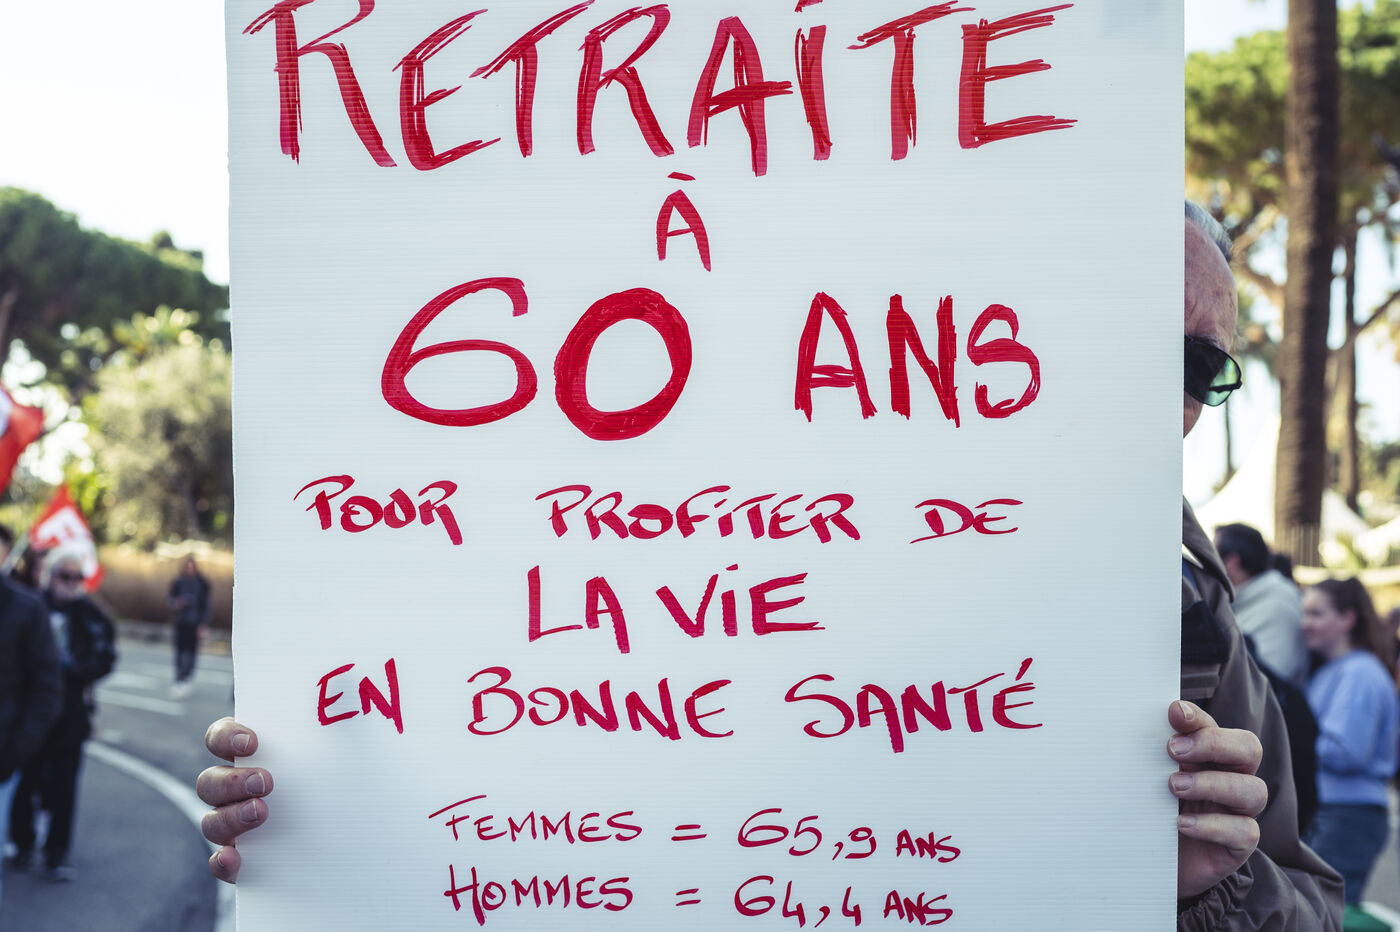 RETRAiTE
À
60 ANS
POUR PROFiTER DE
LA ViE
EN BONNE SANTÉ
FEMMES = 65,9 ANS
HOMMES = 64,4 ANS